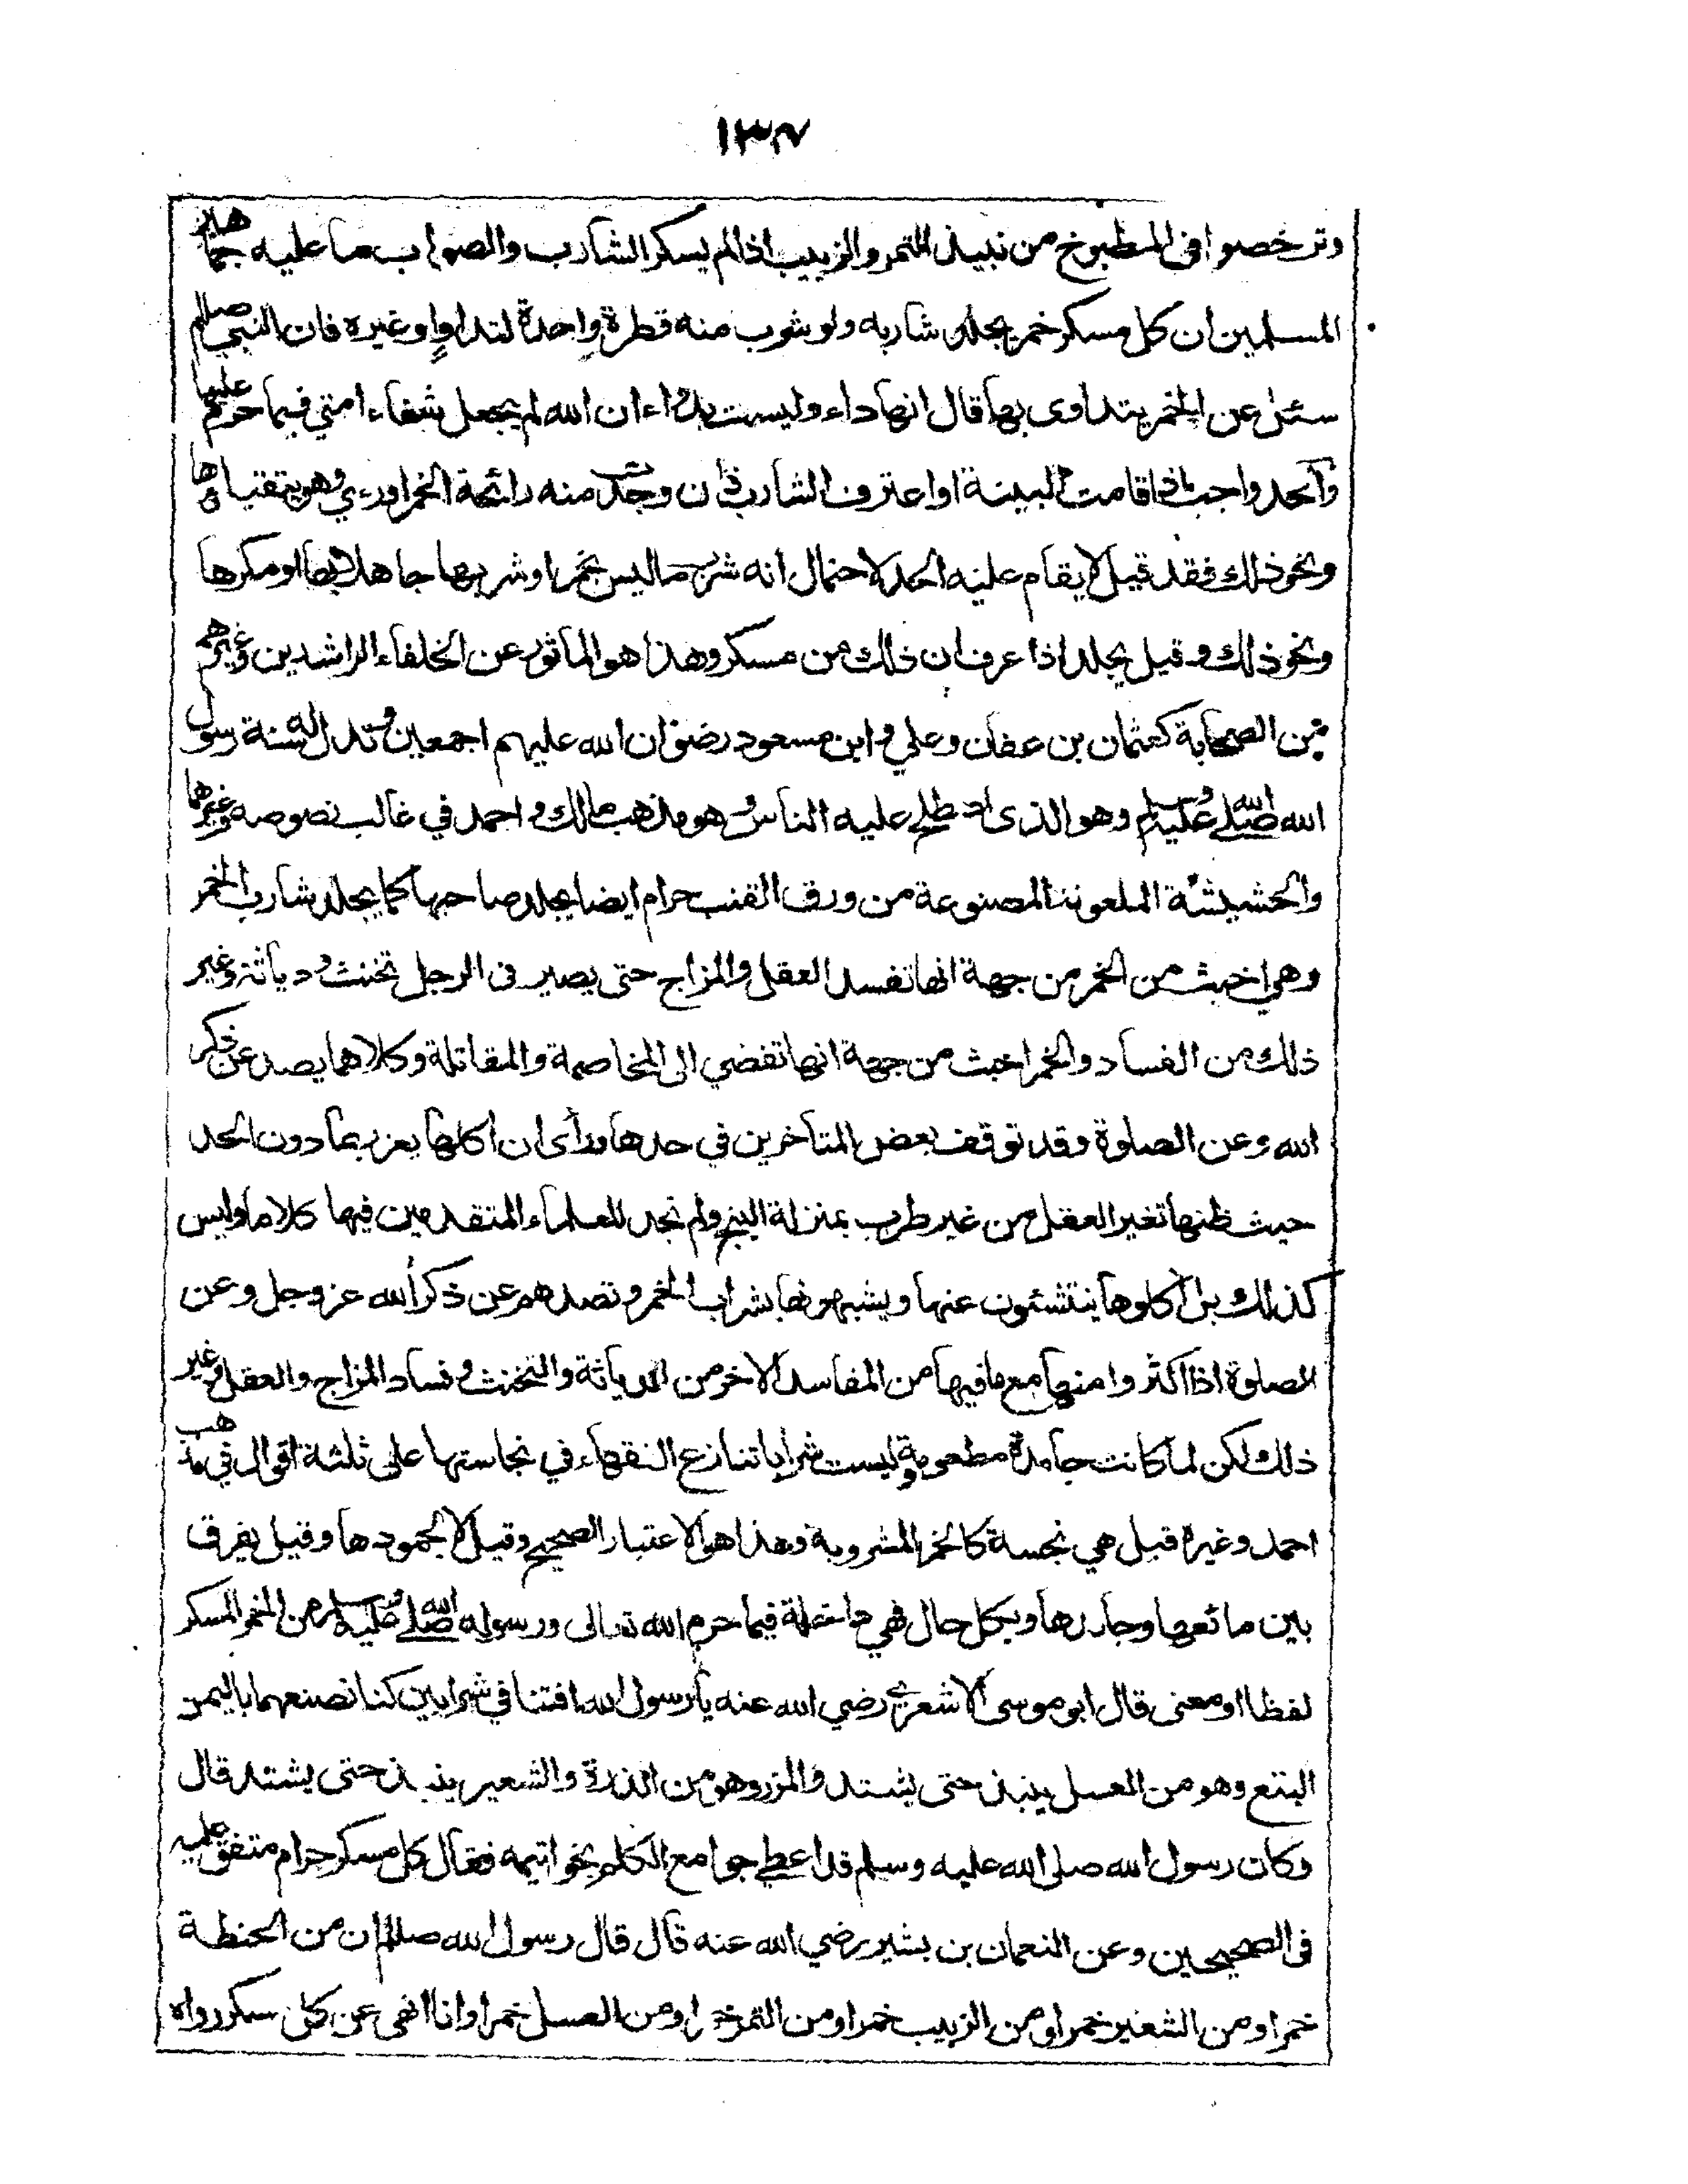 ١٣٧
وترخصوا في المطبوخ من نبيذ التمر والزبيب اذا لم يسكر الشارب والصواب ما عليه جماهير
المسلمين ان كل مسكر خمر يجلد شاربه ولو شرب منه قطرة واحدة لتداوٍ او غيره فان النبي صللم
سئل عن الخمر يتداوى بها قال انها داء وليست بدواء ان الله لم يجعل شفاء امتي فيما حرم عليها
والحد واجب اذا قامت البينة او اعترف الشارب فان وجد منه رائحة الخمر او رءي وهو يتقياها
ونحو ذلك فقد قيل لا يقام عليه الحد لاحتمال انه شرب ما ليس بخمر او شربها جاهلا بها او مكرها
ونحو ذلك وقيل يجلد اذا عرف ان ذلك من مسكر وهذا هو الماثور عن الخلفاء الراشدين وغيرهم
من الصحابة كعثمان بن عفان وعلي وابن مسعود رضوان الله عليهم اجمعين وتدل له سنة رسول
الله صلى الله عليه وسلم وهو الذي اصطلح عليه الناس وهو مذهب مالك واحمد في غالب نصوصه وغيرهما
والحشيشة الملعونة المصنوعة من ورق القنب حرام ايضا يجلد صاحبها كما يجلد شارب الخمر
وهي اخبث من الخمر من جهة انها تفسد العقل والمزاج حتى يصير في الرجل تخنث ودياثة وغير
ذلك من الفساد والخمر اخبث من جهة انها تفضي الى المخاصمة والمقاتلة وكلاهما يصد عن ذكر
الله وعن الصلوة وقد توقف بعض المتأخرين في حدها ورأى ان اكلها يعزر بما دون الحد
حيث ظنها تغير العقل من غير طرب بمنزلة البنج ولم نجد للعلماء المتقدمين فيها كلاما وليس
كذلك بل آكلوها ينتشئون عنها ويشبهونها بشراب الخمر وتصدهم عن ذكر الله عز وجل وعن
الصلوة اذا اكثروا منها مع ما فيها من المفاسد الاخر من الدياثة والتخنث وفساد المزاج والعقل وغير
ذلك ولكن لما كانت جامدة مطعومة وليست شرابا تنازع الفقهاء في نجاستها على ثلثة اقوال في مذهب
احمد وغيره قيل هي نجسة كالخمر المشروبة وهذا هو الاعتبار الصحيح وقيل لا لجمودها وقيل يفرق
بين مائعها وجامدها وبكل حال فهي داخلة فيما حرم الله تعالى ورسوله صلى الله عليه وسلم من الخمر المسكر
لفظا او معنى قال ابو موسى الاشعري رضي الله عنه يا رسول الله افتنا في شرابين كنا نصنعهما باليمن
البتع وهو من العسل ينبذ حتى يشتد والمزر وهو من الذرة والشعير ينبذ حتى يشتد قال
وكان رسول الله صلى الله عليه وسلم قد اعطي جوامع الكلم بخواتيمه فقال كل مسكر حرام متفق عليه
في الصحيحين وعن النعمان بن بشير رضي الله عنه قال قال رسول الله صللم ان من الحنطة
خمرا ومن الشعير خمرا ومن الزبيب خمرا ومن التمر خمرا ومن العسل خمرا وانا انهى عن كل مسكر رواه